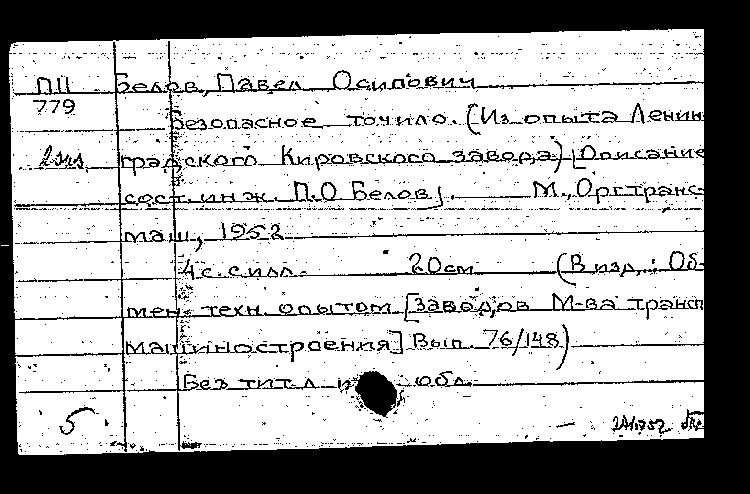 ПII Белов, Павел Осипович
779
Безопасное точило. (Из опыта Ленин-
2 экз. градского Кировского завода) [Описание
сост. инж. П.О Белов].  М., Оргтранс-
маш, 1952
4 с. с илл.  20 см  (В изд.: Об-
мен. техн. опытом [заводов М-ва трансп
машиностроения] Вып. 76/148)
Без тит. л и обл.
5